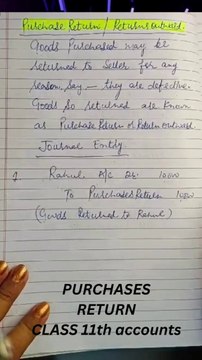 Purchase Return / Returns outward.
Goods Purchased may be
returned to Seller for any
reason, say — they are defective.
Goods so returned are known
as Purchase Return or Return outward.
Journal Entry
Rahul A/c Dr. 1000
To Purchases Return 1000
(Goods Returned to Rahul)
PURCHASES
RETURN
CLASS 11th accounts